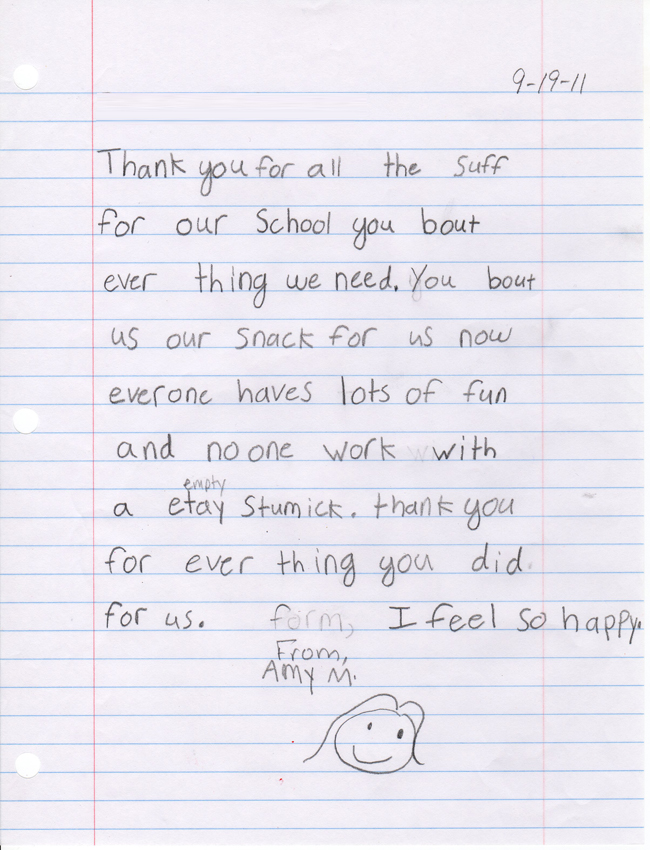 9-19-11
Thank you for all the Suff
for our School you bout
ever thing we need. You bout
us our snack for us now
everone haves lots of fun
and no one work with
empty
a etay Stumick. thank you
for ever thing you did
for us. form, I feel so happy.
From,
Amy M.